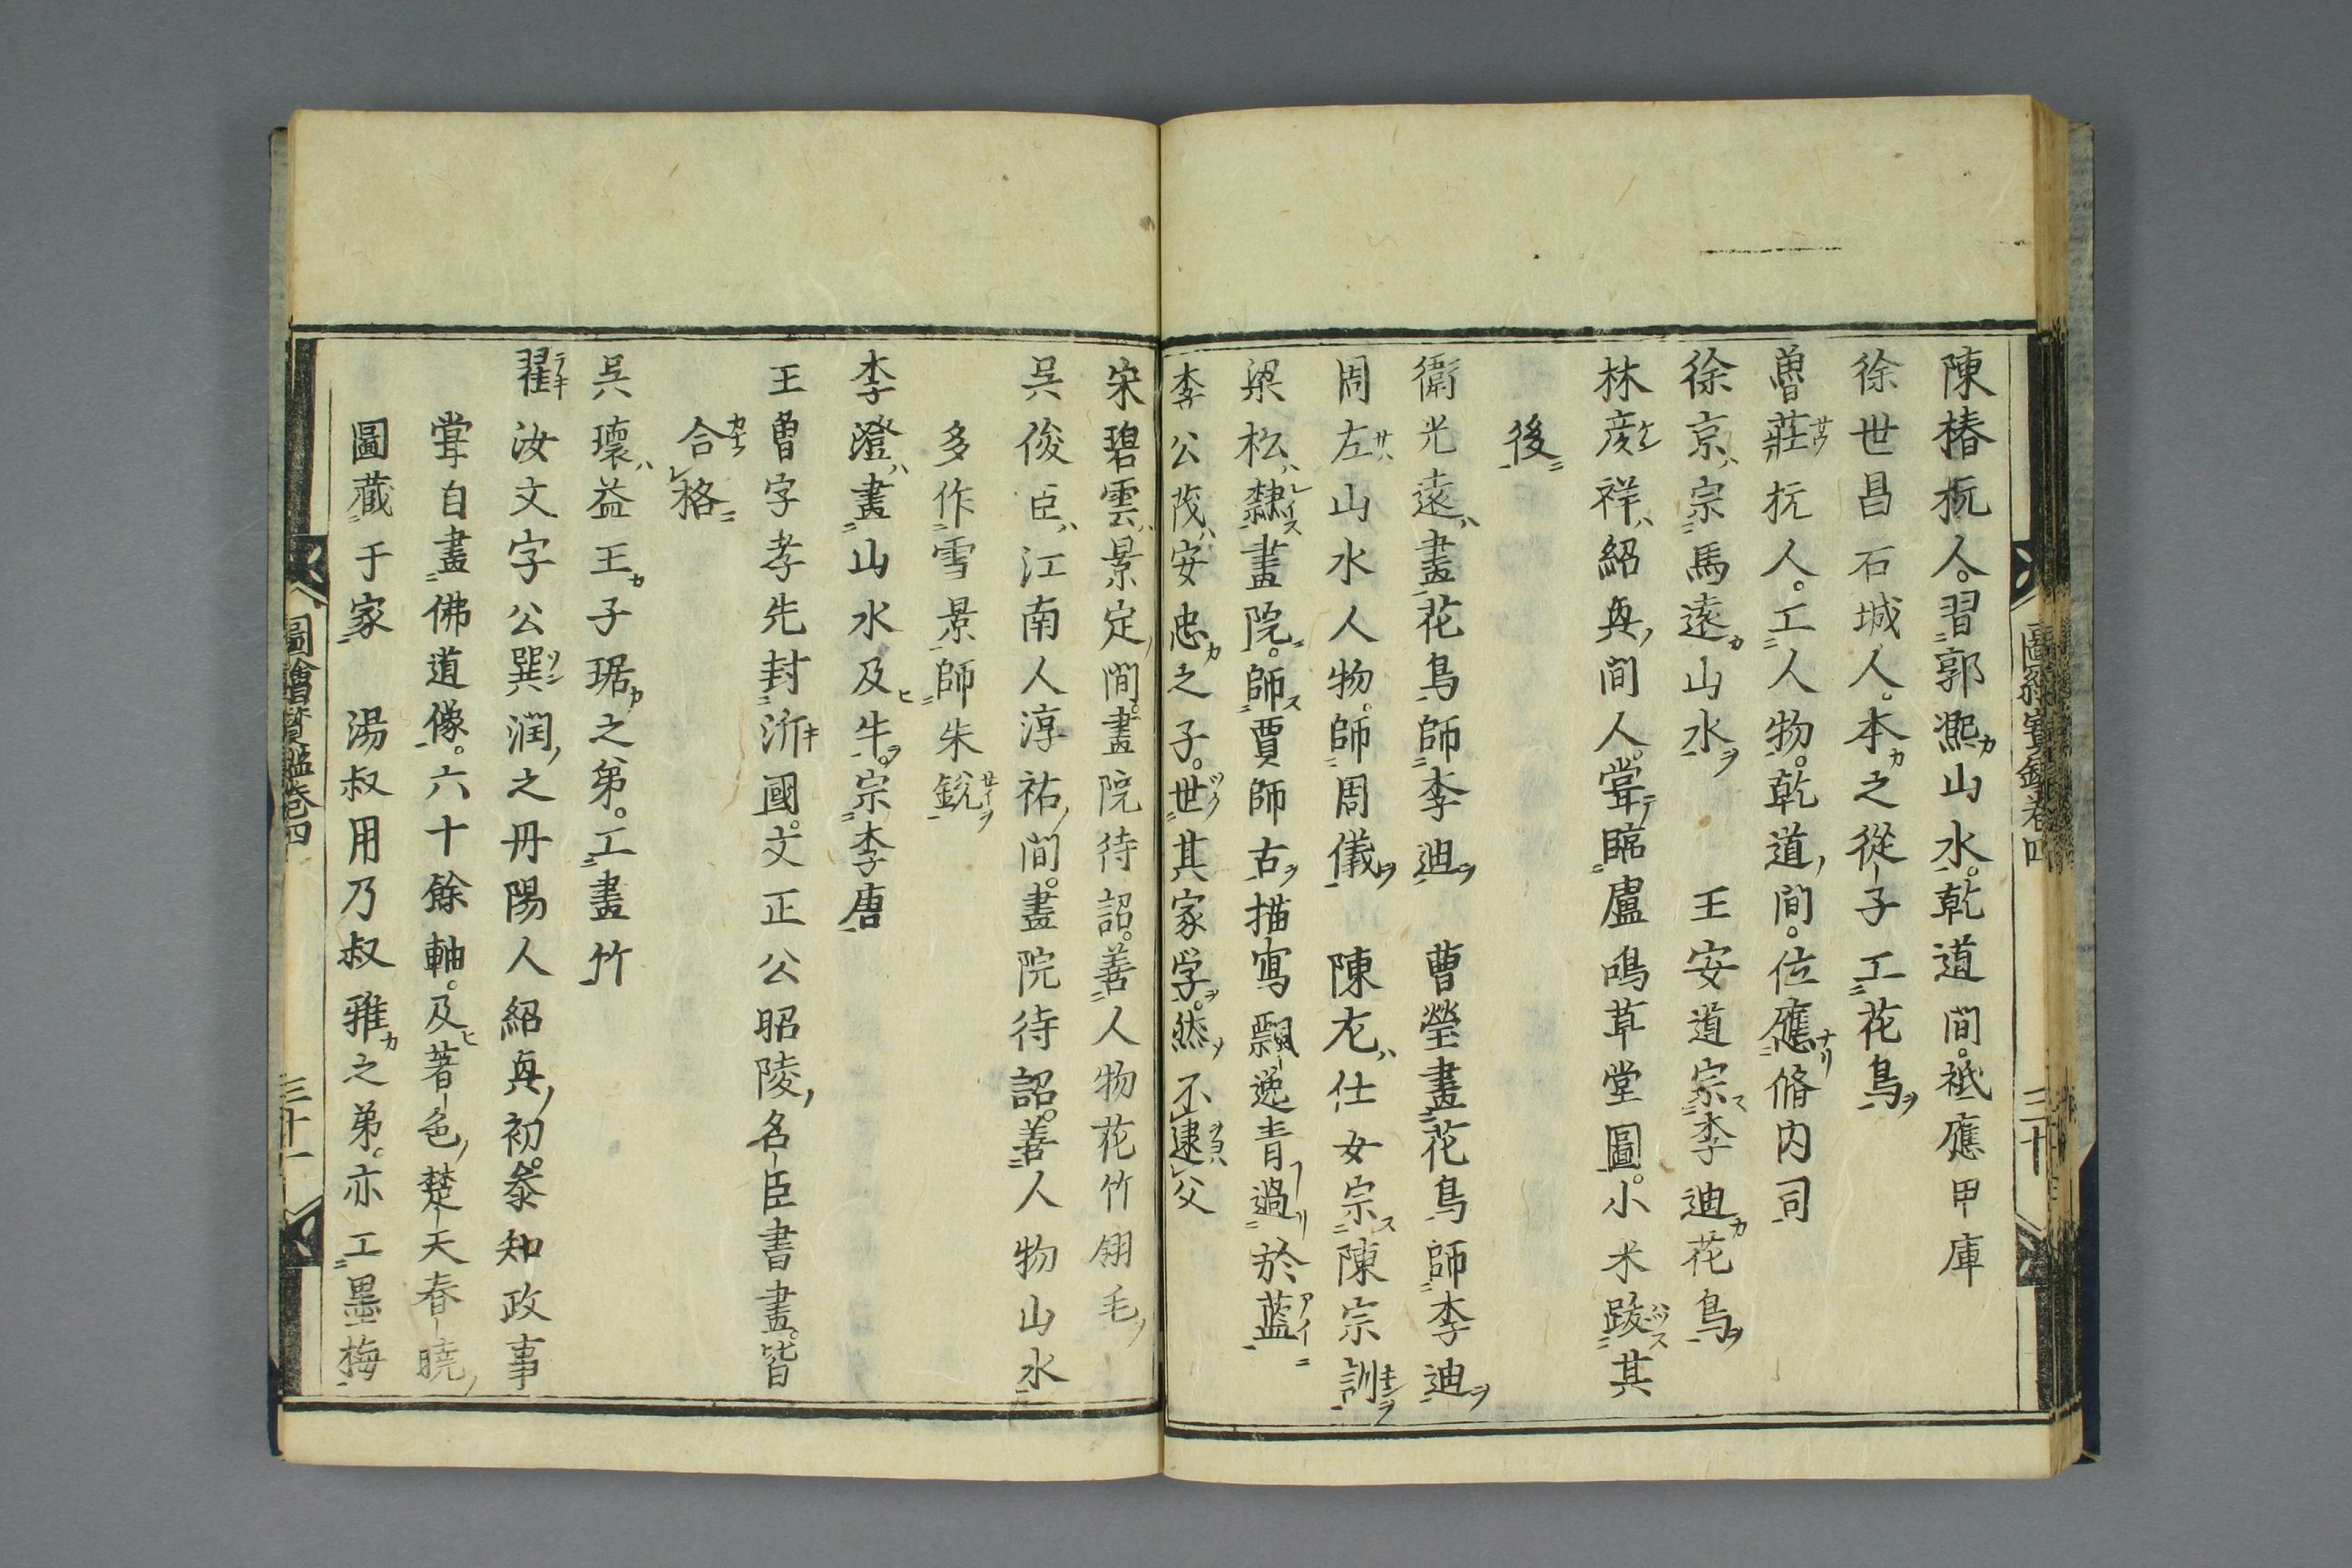 陳椿杭人。習郭熈山水。乾道間。祗應甲庫
徐世昌石城人。本之從子工花鳥
曽莊杭人。工人物。乾道間。位應脩内司
徐京宗馬遠山水　王安道宗李迪花鳥
林彦祥紹興間人。甞臨盧鳴草堂圖。小米跋其
後
衞光遠畫花鳥師李迪　曹瑩畫花鳥師李迪
周左山水人物。師周儀　陳尢仕女宗陳宗訓
梁松隸畫院。師賈師古描寫飄逸青過於藍
李公茂安忠之子。世其家学。然不逮父
宋碧雲景定間。畫院待詔。善人物花竹翎毛
吳俊臣江南人淳祐間。畫院待詔。善人物山水
多作雪景師朱銳
李澄畫山水及牛。宗李唐
王曽字孝先封沂國。文正公昭陵名臣書畫。皆
合格
吳瓌益王子琚之弟。工畫竹
翟汝文字公巽潤之丹陽人紹興初。參知政事
甞自畫佛道像。六十餘軸。及著色楚天春曉
圖藏于家　湯叔用乃叔雅之弟。亦工墨梅
圖繪寳鑑卷四
三十
圖繪寳鑑卷四
三十一